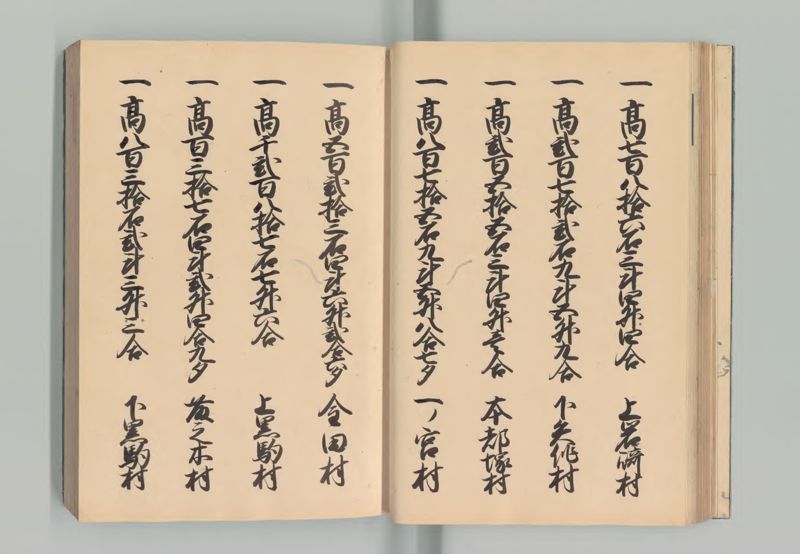 一高七百八拾六石三斗四升四合 上岩崎村
一高弐百七拾弐石九斗五升九合 下矢作村
一高弐百五拾五石三斗四升壱合 本都塚村
一高八百七拾五石九斗五升八合七夕 一ノ宮村
一高五百弐拾三石四斗六升弐合 金田村
一高千弐百八拾七石七升六合 上黒駒村
一高百三拾七石四斗弐升四合九夕 之木村
一高八百三拾石弐斗三升三合 下黒駒村